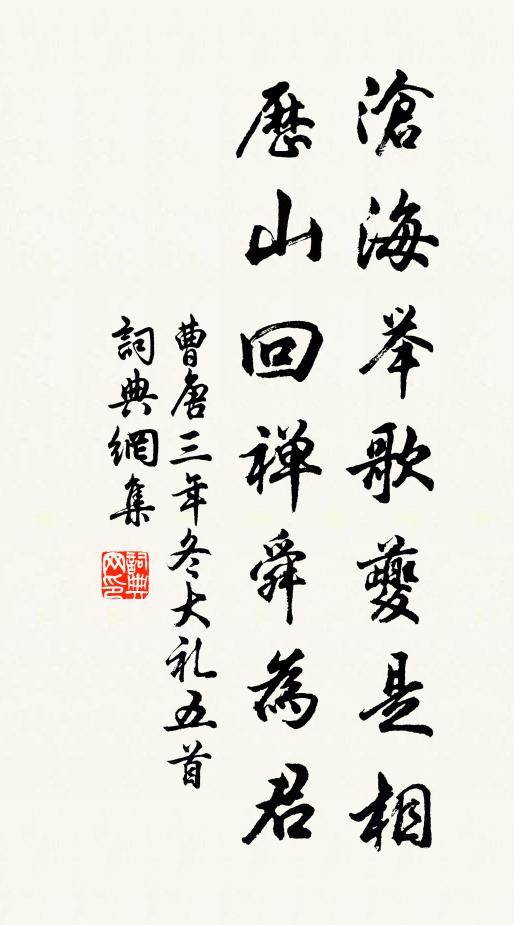 滄海举歌夔是相
歷山回禅舜為君
曹唐三年冬大礼五首
詞典網集
詞典網印